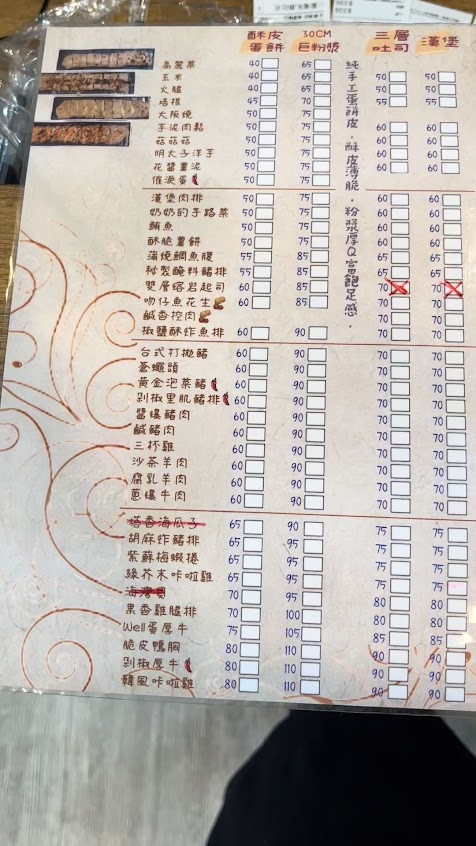 酥皮蛋餅 30CM巨粉漿 三層吐司 漢堡
高麗菜 40 65
玉米 40 65 50 50
火腿 40 65 50 50
培根 45 70 55 55
大阪燒 50 75
芋泥肉鬆 50 75 60 60
菇菇菇 50 75 60 60
明太子洋芋 50 75 60 60
花醬薯泥 50 75 60 60
催淚蛋 50 75
純手工蛋餅皮，酥皮薄脆，粉漿厚Q富飽足感。
漢堡肉排 50 75 60 60
奶奶的手路菜 50 75 60 60
鮪魚 50 75 60 60
酥脆薯餅 50 75 60 60
蒲燒鯛魚腹 55 85 65 65
秘製醃料豬排 55 85 65 65
雙層熔岩起司 60 85 70 70
吻仔魚花生 60 85 70 70
鹹香控肉 70 70
椒鹽酥炸魚排 60 90 70 70
台式打拋豬 60 90 70 70
蒼蠅頭 60 90 70 70
黃金泡菜豬 60 90 70 70
剁椒里肌豬排 60 90 70 70
醬爆豬肉 60 90 70 70
鹹豬肉 60 90 70 70
三杯雞 60 90 70 70
沙茶羊肉 60 90 70 70
腐乳羊肉 60 90 70 70
蔥爆牛肉 60 90 70 70
塔香海瓜子 65 90 75 75
胡麻炸豬排 65 95 75 75
紫蘇梅蝦捲 65 95 75 75
綠芥末咔啦雞 65 95 75 75
海灣貝 70 95 80 80
果香雞腿排 70 100 80 80
Well蛋厚牛 75 105 85 85
脆皮鴨胸 80 110 90 90
剁椒厚牛 80 110 90 90
韓風咔啦雞 80 110 90 90